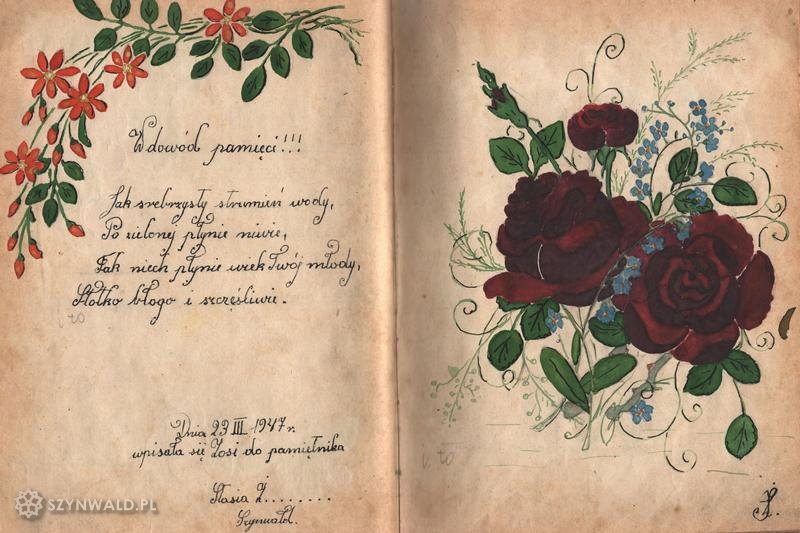 W dowód pamięci!!!
Jak srebrzysty strumień wody,
Po zielonej płynie niwie,
Tak niech płynie wiek Twój młody,
Słodko błogo i szczęśliwie.
Dnia 29 III 1947 r.
wpisała się Zosi do pamiętnika
Stasia Z........
Szynwald.
SZYNWALD.PL